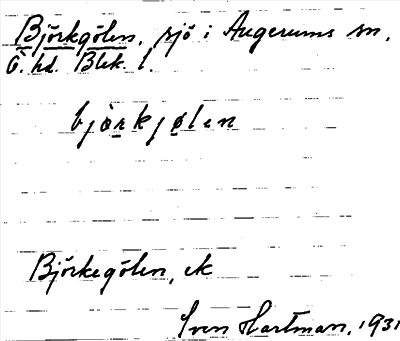 Björkgölen, sjö i Augerums sn,
Ö. hd. Blek. l.
bjòrkjølen
Björkegölen, ek
Sven Hartman, 1931